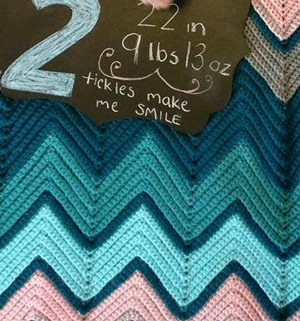 2
22 in
9 lbs 13 oz
tickles make
me SMILE